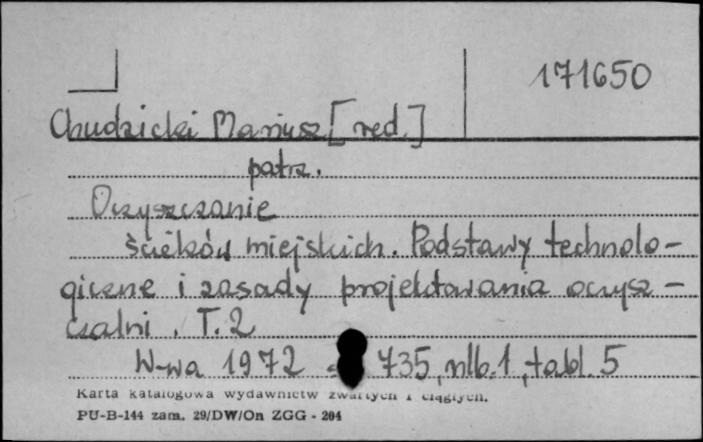 171650
Chudzicki Mariusz [red.]
patrz.
Oczyszczanie
ścieków miejskich. Podstawy technolo-
giczne i zasady projektowania oczysz-
czalni. T. 2
W-wa 1972 735, nlb. 1, tabl. 5
Karta katalogowa wydawnictw zwartych i ciągłych.
PU-B-144 zam. 29/DW/On ZGG - 204